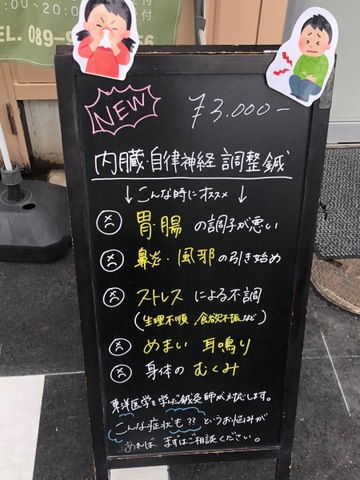 ~20:00
受付
TEL. 089-9
NEW
¥3,000-
内臓・自律神経 調整鍼
↓こんな時にオススメ↓
胃腸の調子が悪い
鼻炎・風邪の引き始め
ストレスによる不調
(生理不順/食欲不振など)
めまい 耳鳴り
身体のむくみ
東洋医学を学んだ鍼灸師が対応します。
こんな症状も??というお悩みが
あれば、まずはご相談ください。